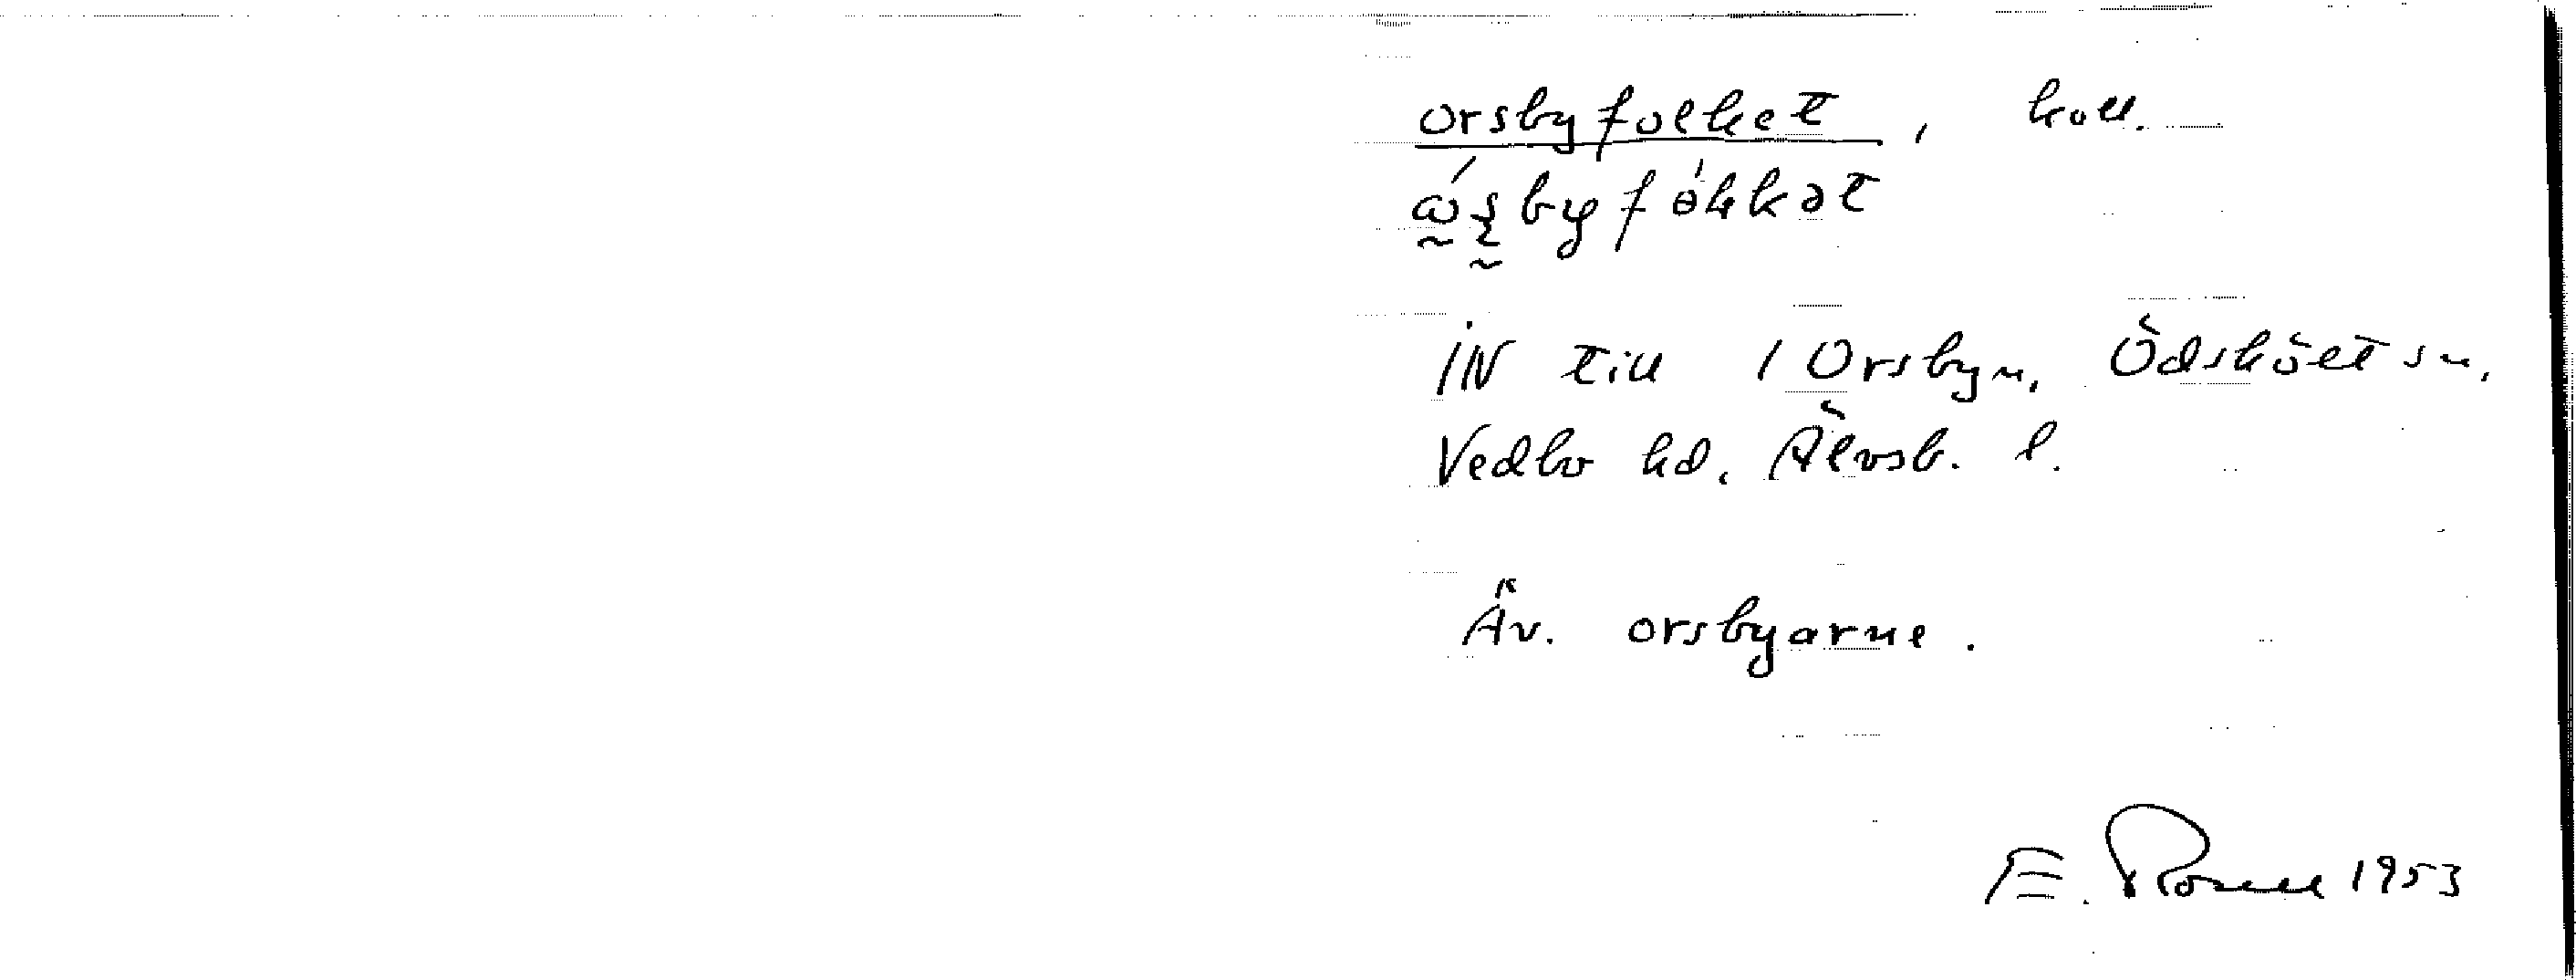 orsbyfolket, koll.
IN till 1 Orsbyn, Ödskölt sn,
Vedbo hd, Älvsb. l.
Äv. orsbyarne.
E. Rosell 1953